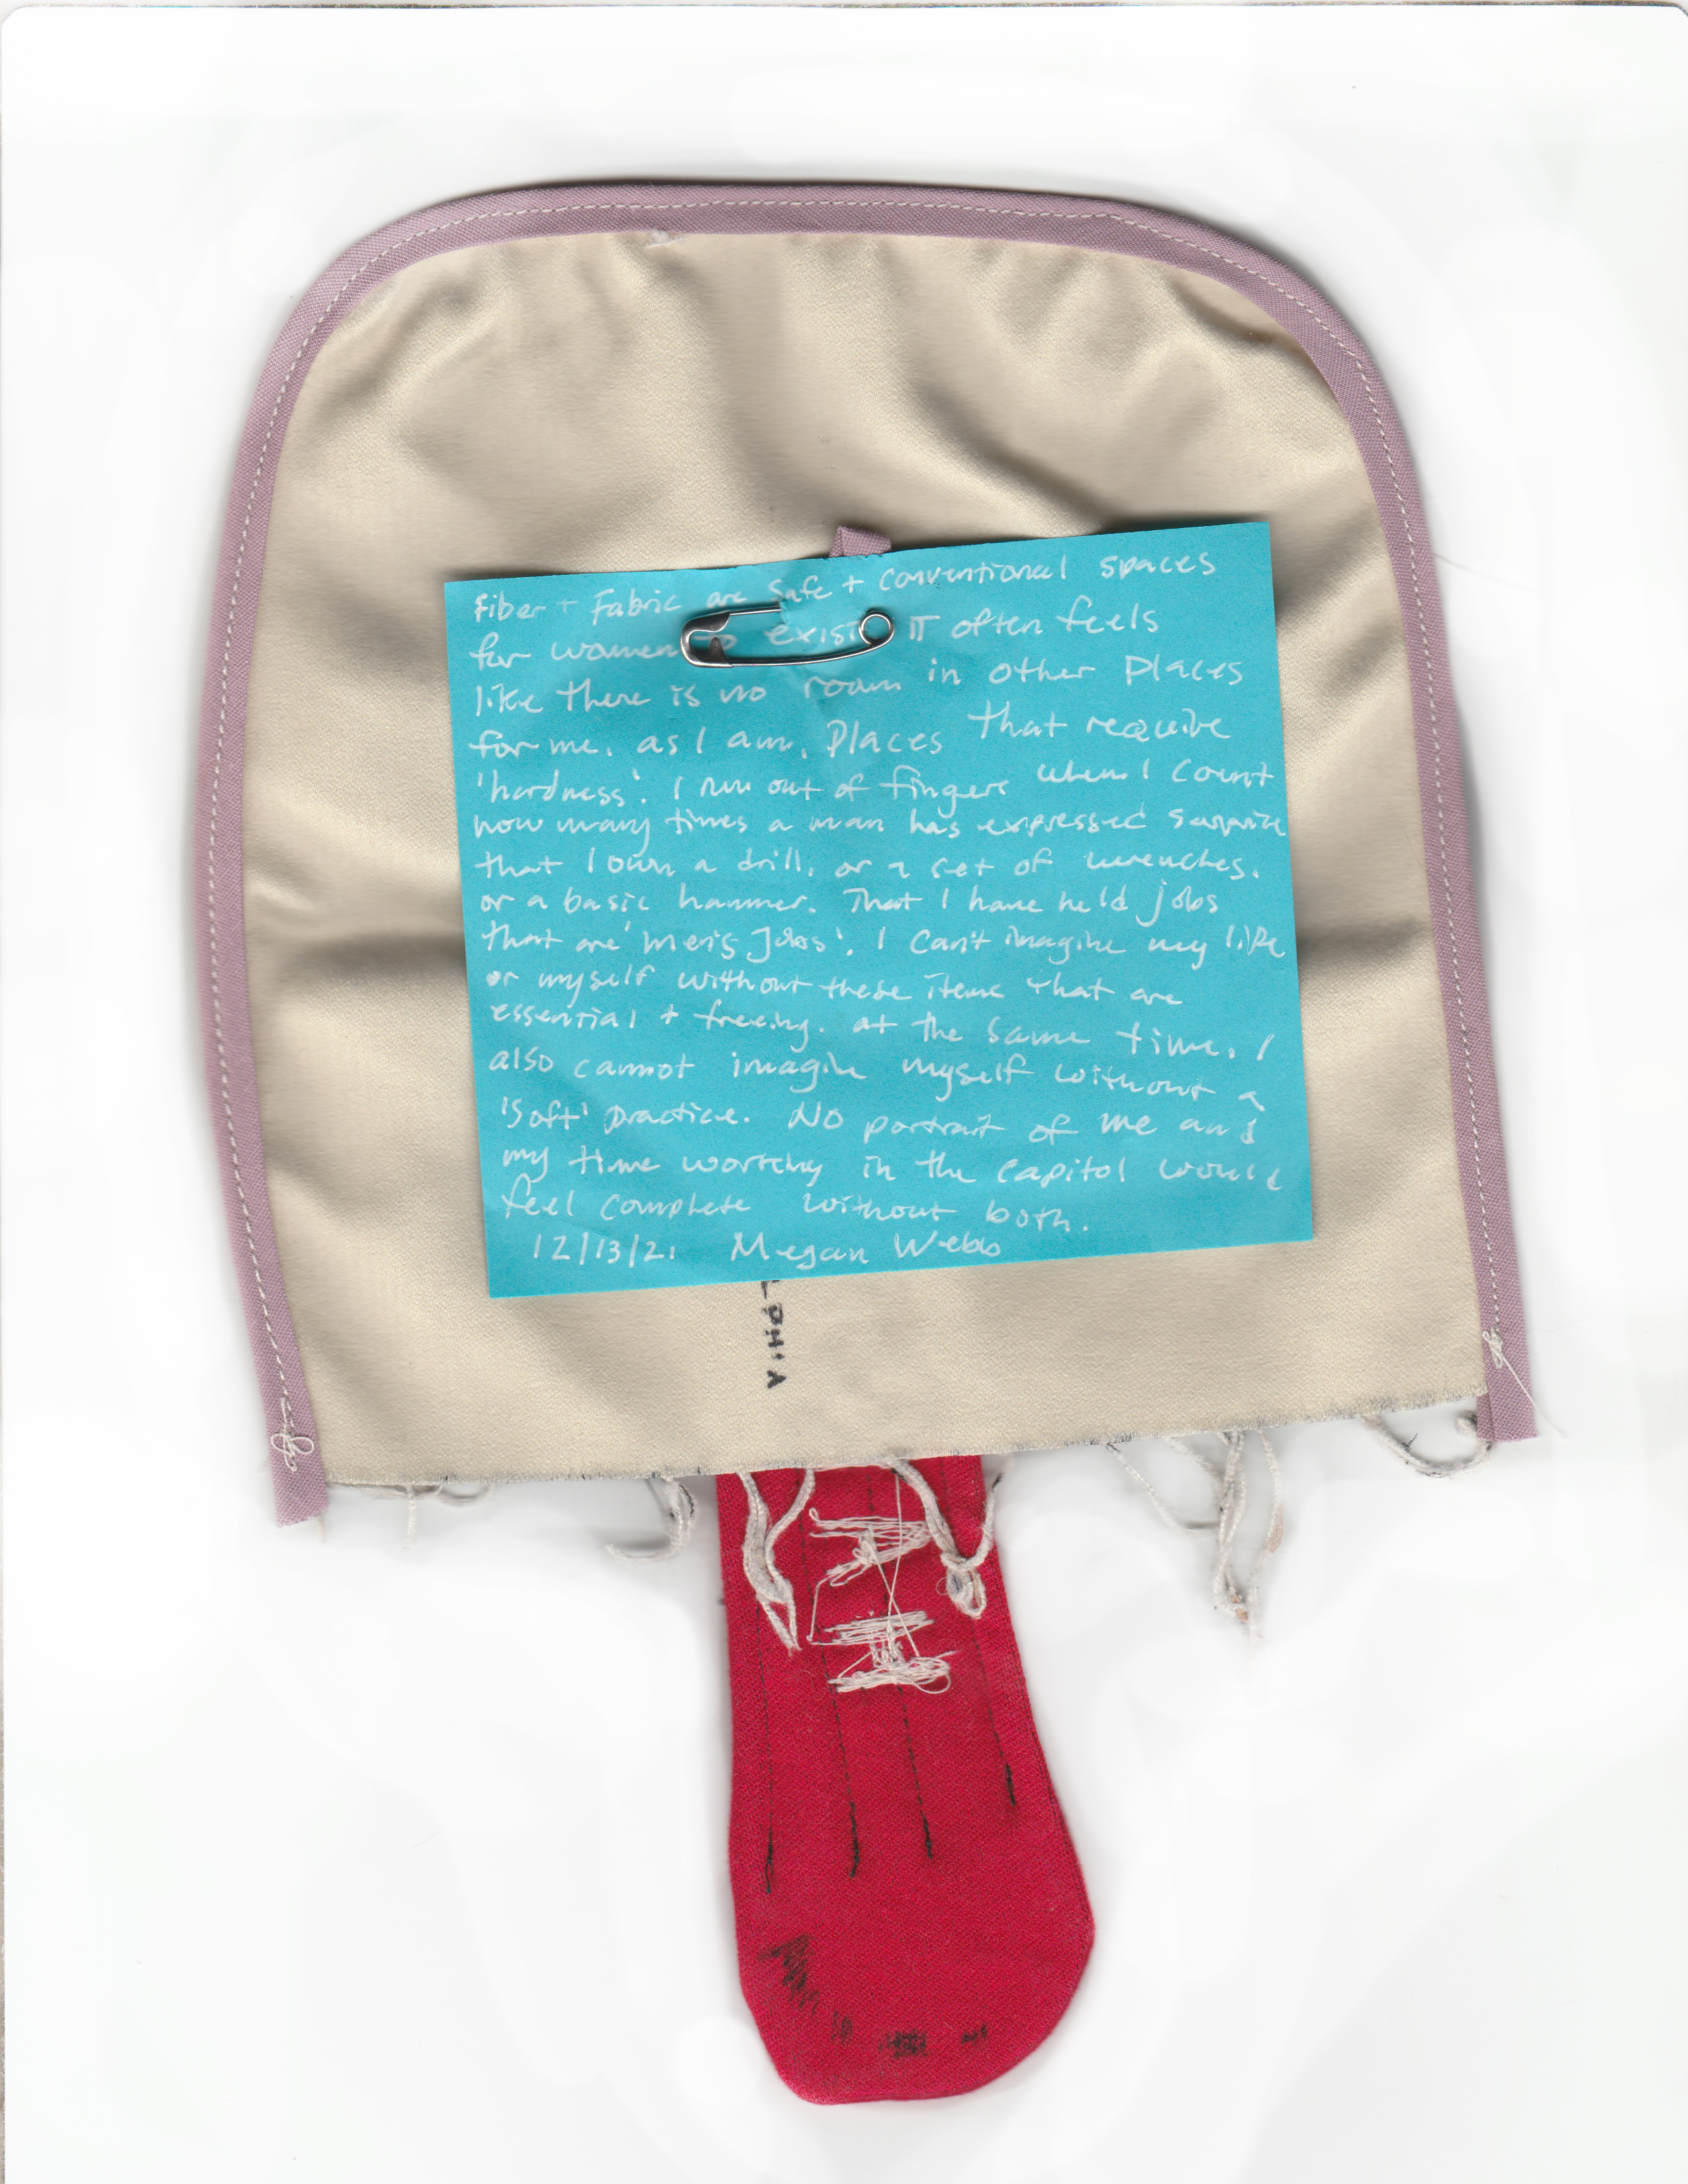 Fiber + Fabric are safe + conventional spaces
for women to exist. IT often feels
like there is no room in other places
for me. as I am. Places that require
'hardness'. I run out of fingers when I count
how many times a man has expressed surprise
that I own a drill, or a set of wrenches.
or a basic hammer. That I have held jobs
that are 'men's jobs'. I can't imagine my life
or myself without these items that are
essential + freeing. at the same time, I
also cannot imagine myself without a
'soft' practice. No portrait of me and
my time working in the capitol would
feel complete without both.
12/13/21 Megan Webb
LPHIA